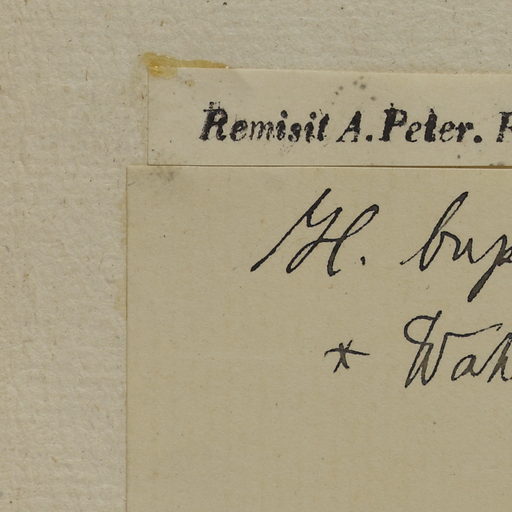 Remisit A. Peter.
H. bup
* Wah